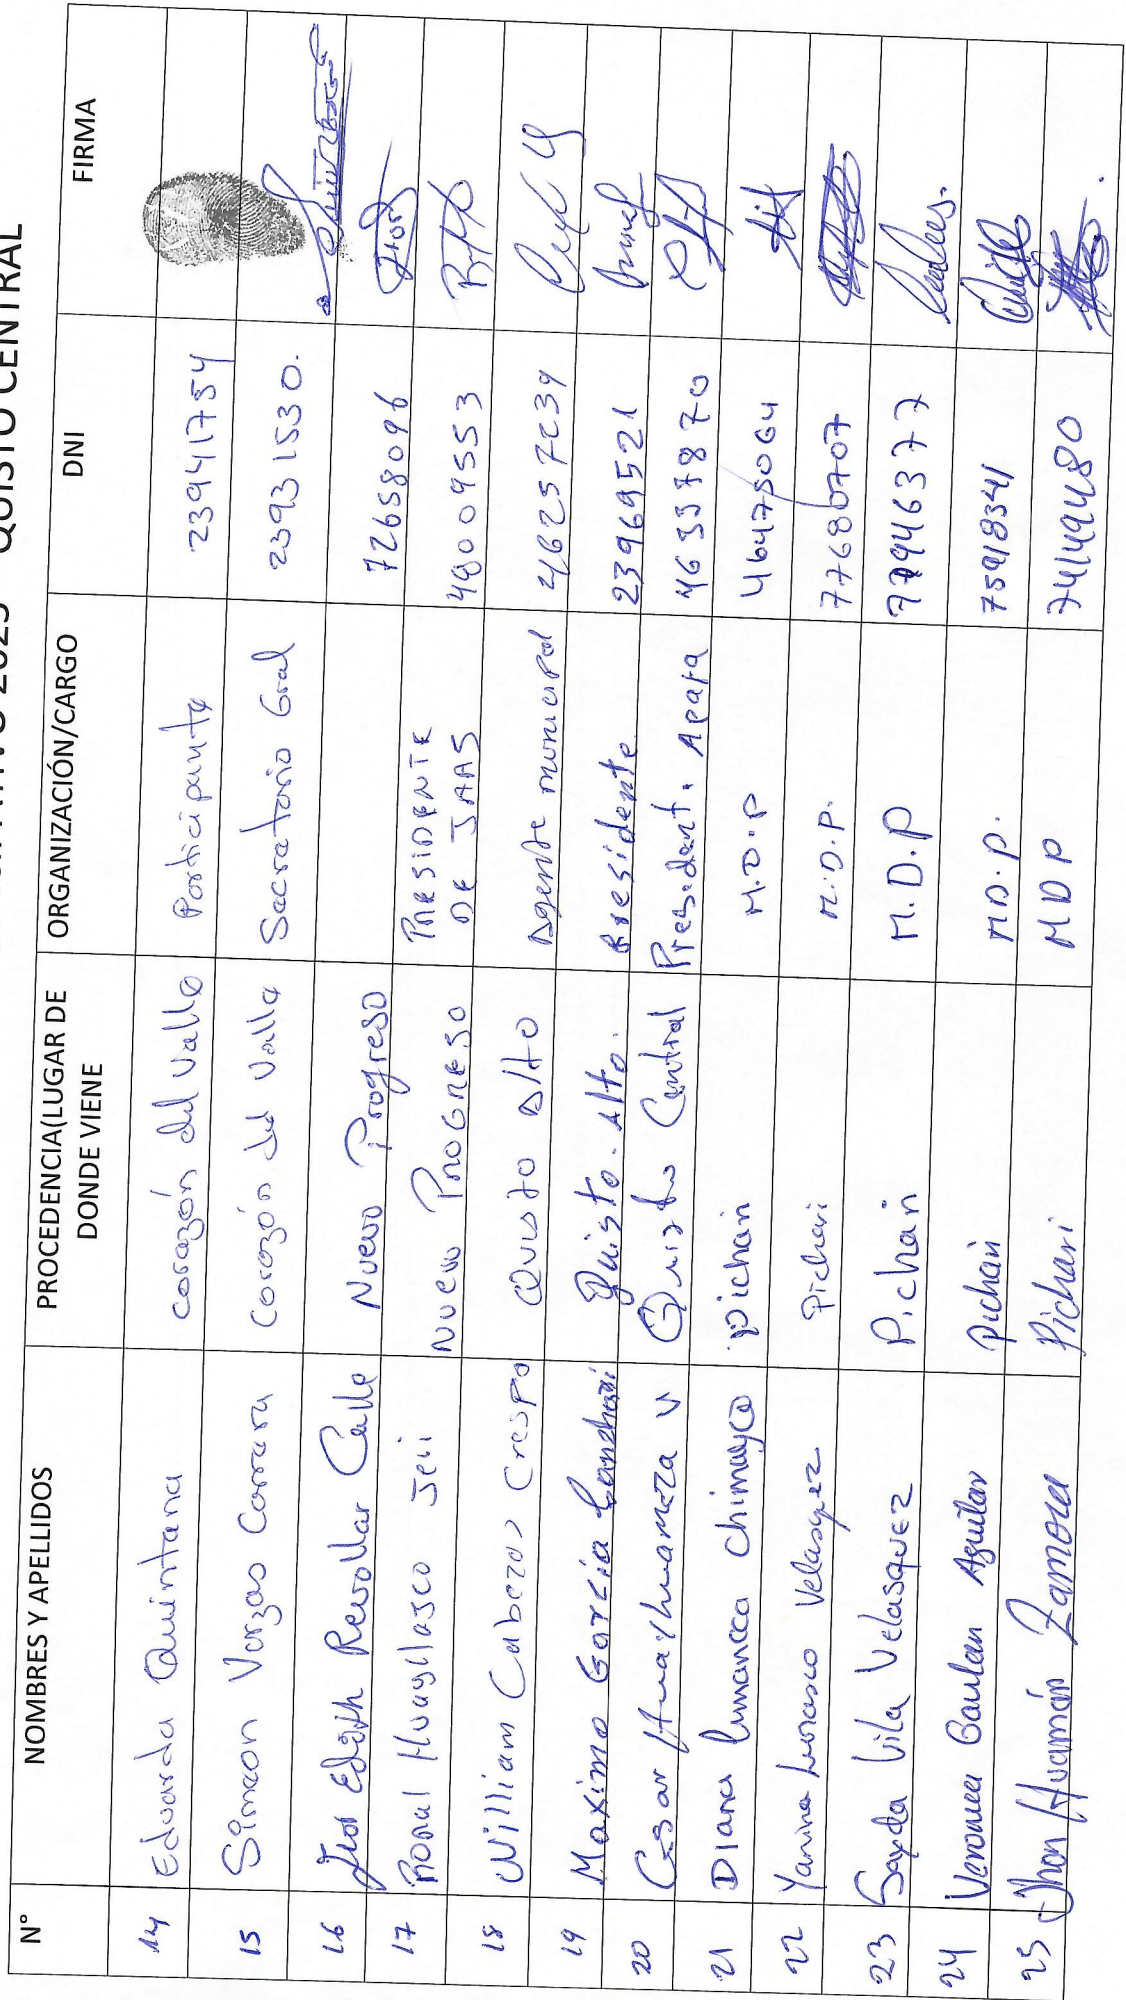 2025 - QUISTO CENTRAL
N° NOMBRES Y APELLIDOS PROCEDENCIA(LUGAR DE DONDE VIENE ORGANIZACIÓN/CARGO DNI FIRMA
14 Eduarda Quintana corazón del Valle Participante 23941754
15 Simeon Vargas Carrara Corazón del Valle Secretario Gral 23931530.
16 Edith Revollar Calle Nuevo Progreso 72658096
17 Ronal Huayllasco Jeri Nuevo PROGRESO PRESIDENTE DE JAAS 48009553
18 William Cabezas Crespo Quisto Alto Agente municipal 46257239
19 Maximo García Quisto. Alto. Presidente 23969521
20 Cesar Huayhuameza V Quisto Central President. Apafa 46337870
21 Diana Lunasco Chimayco pichari M.D.P 46475064
22 Yanina Lunasco Velasquez Pichari M.D.P. 77680707
23 Sayda Vila Velasquez Pichari M.D.P 77946377
24 Veronica Gavilan Aguilar Pichari M.D.P. 75918341
25 Jhon Huamán Zamora Pichari MDP 74149480